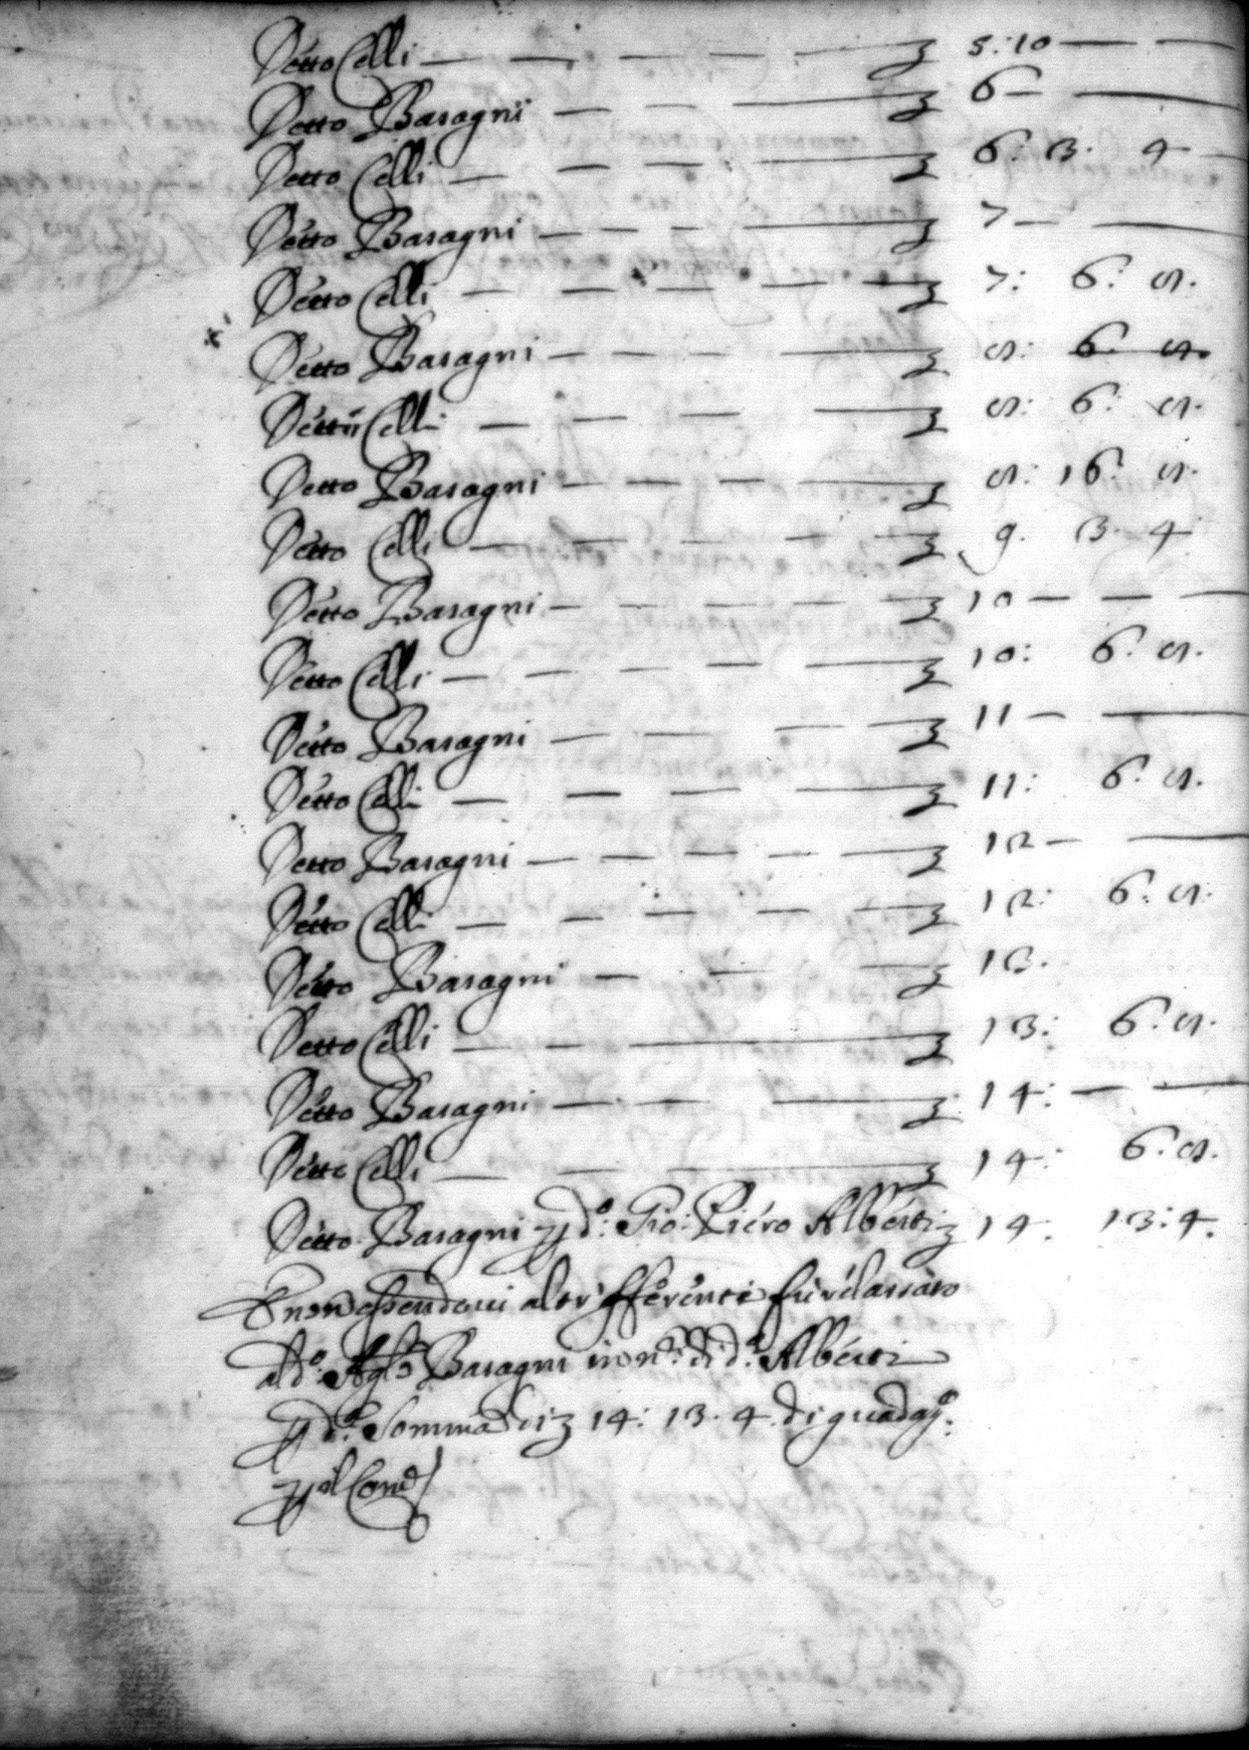 Detto Celli — — — — ₤ 5:10 — —
Detto Baragni — — — ₤ 6 — —
Detto Celli — — — — ₤ 6. 13. 4 —
Detto Baragni — — — — ₤ 7 — —
Detto Celli — — — — — ₤ 7: 6: 8.
Detto Baragni — — — — ₤ 8: 6. 8.
Detto Celli — — — — ₤ 8: 6: 8.
Detto Baragni — — — — — ₤ 8: 16: 8.
Detto Celli — — — — — ₤ 9. 13. 4
Detto Baragni — — — — — ₤ 10 — — —
Detto Celli — — — — — ₤ 10: 6: 8.
Detto Baragni — — — — ₤ 11 — —
Detto Celli — — — — — ₤ 11: 6: 8.
Detto Baragni — — — — — ₤ 12 — —
Detto Celli — — — — — ₤ 12: 6: 8.
Detto Baragni — — — ₤ 13.
Detto Celli — — — ₤ 13: 6: 8.
Detto Baragni — — — ₤ 14: — —
Detto Celli — — — ₤ 14: 6: 8.
Detto Baragni p d.º Gio: Piero Alberti ₤ 14. 13:4.
E non essendoui altri offerenti fu rilassato
al d.º Baragni in n.º di d.º Alberti
p d.ª Somma di ₤ 14: 13. 4. di guadag.º
p il Cond